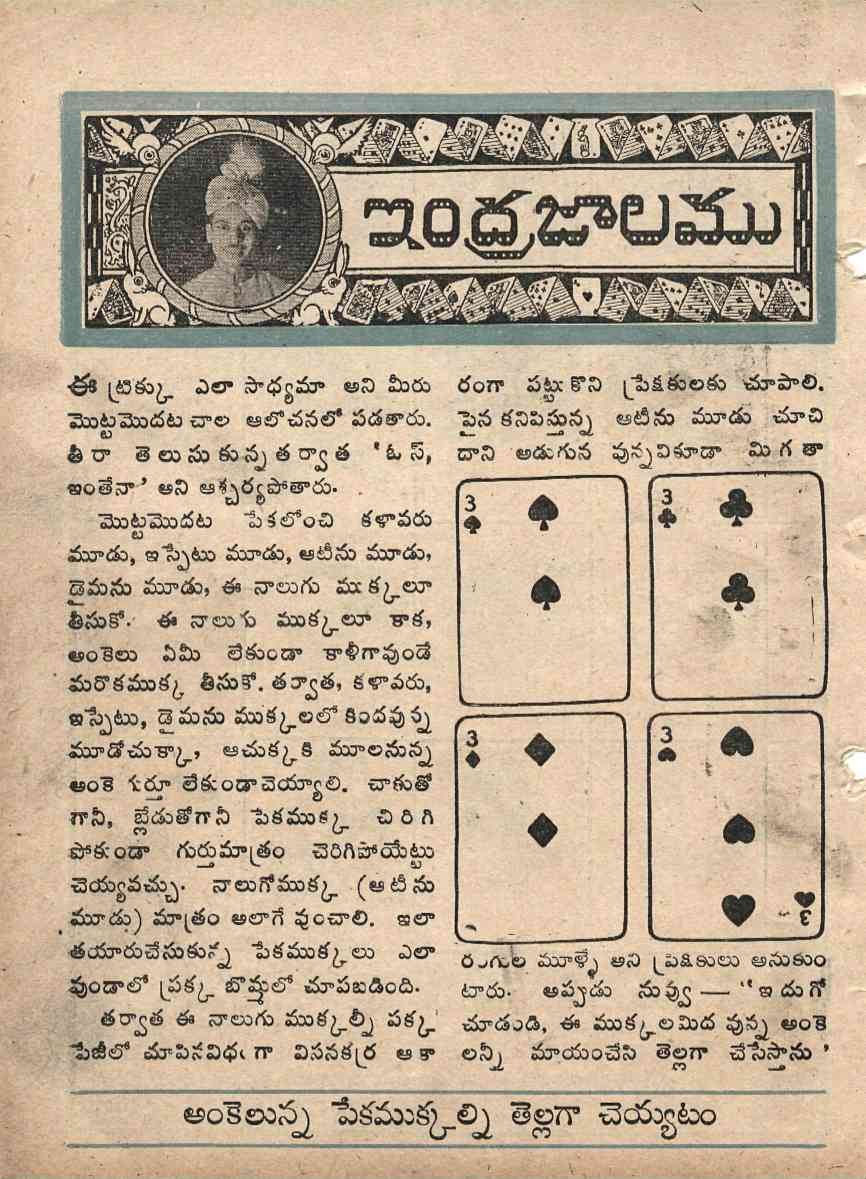 ఇంద్రజాలము
ఈ ట్రిక్కు ఎలా సాధ్యమా అని మీరు
మొట్టమొదట చాల ఆలోచనలో పడతారు.
తీరా తెలుసుకున్న తర్వాత ‘ఓస్,
ఇంతేనా’ అని ఆశ్చర్యపోతారు.
మొట్టమొదట పేకలోంచి కళావరు
మూడు, ఇస్పేటు మూడు, ఆటీను మూడు,
డైమను మూడు, ఈ నాలుగు ముక్కలూ
తీసుకో. ఈ నాలుగు ముక్కలూ కాక,
అంకెలు ఏమీ లేకుండా కాళీగావుండే
మరొకముక్క తీసుకో. తర్వాత, కళావరు,
ఇస్పేటు, డైమను ముక్కలలో కిందవున్న
మూడోచుక్కా, ఆచుక్కకి మూలనున్న
అంకె గుర్తూ లేకుండా చెయ్యాలి. చాకుతో
గానీ, బ్లేడుతోగానీ పేకముక్క చిరిగి
పోకుండా గుర్తుమాత్రం చెరిగిపోయేట్టు
చెయ్యవచ్చు. నాలుగోముక్క (ఆటీను
మూడు) మాత్రం అలాగే వుంచాలి. ఇలా
తయారుచేసుకున్న పేకముక్కలు ఎలా
వుండాలో ప్రక్క బొమ్మలో చూపబడింది.
తర్వాత ఈ నాలుగు ముక్కల్నీ పక్క
పేజీలో చూపినవిధంగా విసనకర్ర ఆకా
రంగా పట్టుకొని ప్రేక్షకులకు చూపాలి.
పైన కనిపిస్తున్న ఆటీను మూడు చూచి
దాని అడుగున వున్నవికూడా మిగతా
3
3
3
3
3
రంగుల మూళ్ళే అని ప్రేక్షకులు అనుకుం
టారు. అప్పుడు నువ్వు — “ఇదుగో
చూడండి, ఈ ముక్కలమీద వున్న అంకె
లన్నీ మాయంచేసి తెల్లగా చేసేస్తాను’
అంకెలున్న పేకముక్కల్ని తెల్లగా చెయ్యటం